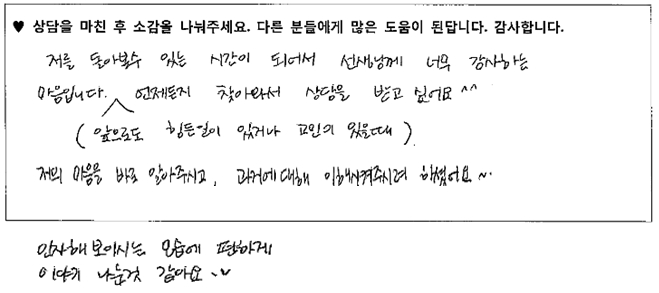 ♥ 상담을 마친 후 소감을 나눠주세요. 다른 분들에게 많은 도움이 된답니다. 감사합니다.
저를 돌아볼수 있는 시간이 되어서 선생님께 너무 감사하는
마음입니다. 언제든지 찾아와서 상담을 받고 싶어요^^
(앞으로도 힘든일이 있거나 고민이 있을때)
저의 마음을 바로 알아주시고, 과거에대해 이해시켜주시려 하셨어요~.
인자해보이시는 모습에 편하게
이야기 나눈것 같아요